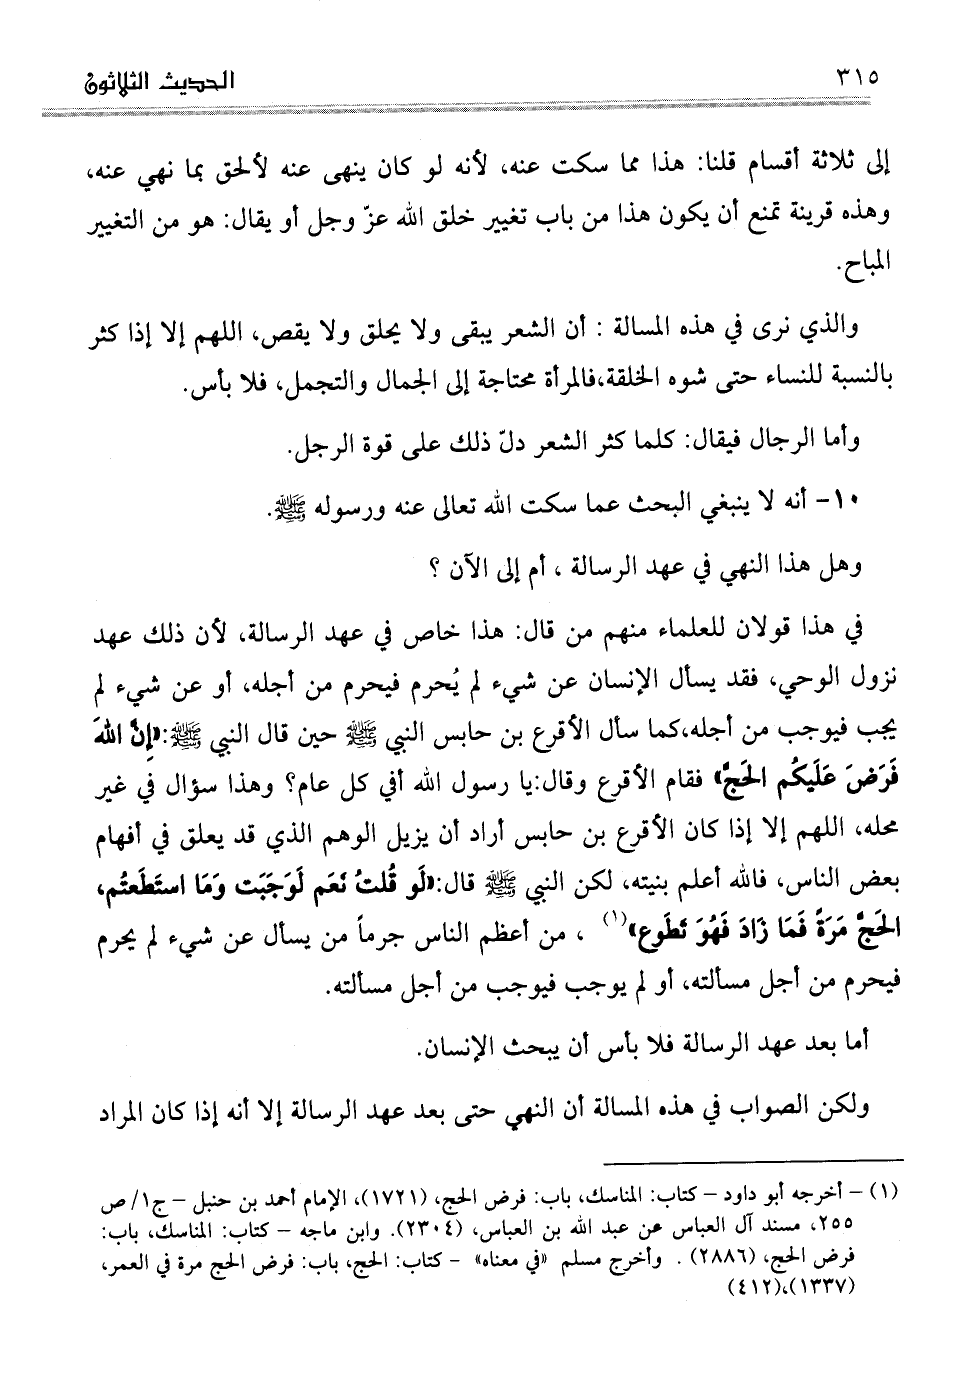 ٣١٥
الحديث الثلاثون
إلى ثلاثة أقسام قلنا: هذا مما سكت عنه، لأنه لو كان ينهى عنه لألحق بما نهي عنه،
وهذه قرينة تمنع أن يكون هذا من باب تغيير خلق الله عزّ وجل أو يقال: هو من التغيير
المباح.
والذي نرى في هذه المسالة : أن الشعر يبقى ولا يحلق ولا يقص، اللهم إلا إذا كثر
بالنسبة للنساء حتى شوه الخلقة،فالمرأة محتاجة إلى الجمال والتجمل، فلا بأس.
وأما الرجال فيقال: كلما كثر الشعر دلّ ذلك على قوة الرجل.
١٠- أنه لا ينبغي البحث عما سكت الله تعالى عنه ورسوله ﷺ.
وهل هذا النهي في عهد الرسالة ، أم إلى الآن ؟
في هذا قولان للعلماء منهم من قال: هذا خاص في عهد الرسالة، لأن ذلك عهد
نزول الوحي، فقد يسأل الإنسان عن شيء لم يُحرم فيحرم من أجله، أو عن شيء لم
يجب فيوجب من أجله،كما سأل الأقرع بن حابس النبي ﷺ حين قال النبي ﷺ:«إِنَّ اللهَ
فَرَضَ عَلَيكُم الحَجَّ» فقام الأقرع وقال:يا رسول الله أفي كل عام؟ وهذا سؤال في غير
محله، اللهم إلا إذا كان الأقرع بن حابس أراد أن يزيل الوهم الذي قد يعلق في أفهام
بعض الناس، فالله أعلم بنيته، لكن النبي ﷺ قال:«لَو قُلتُ نَعَم لَوَجَبَت وَمَا استَطَعتُم،
الحَجَّ مَرَةً فَمَا زَادَ فَهُوَ تَطَوع»(١) ، من أعظم الناس جرماً من يسأل عن شيء لم يحرم
فيحرم من أجل مسألته، أو لم يوجب فيوجب من أجل مسألته.
أما بعد عهد الرسالة فلا بأس أن يبحث الإنسان.
ولكن الصواب في هذه المسالة أن النهي حتى بعد عهد الرسالة إلا أنه إذا كان المراد
(١) – أخرجه أبو داود – كتاب: المناسك، باب: فرض الحج، (١٧٢١)، الإمام أحمد بن حنبل – ج١/ ص
٢٥٥، مسند آل العباس عن عبد الله بن العباس، (٢٣٠٤). وابن ماجه – كتاب: المناسك، باب:
فرض الحج، (٢٨٨٦) . وأخرج مسلم «في معناه» – كتاب: الحج، باب: فرض الحج مرة في العمر،
(١٣٣٧)،(٤١٢)